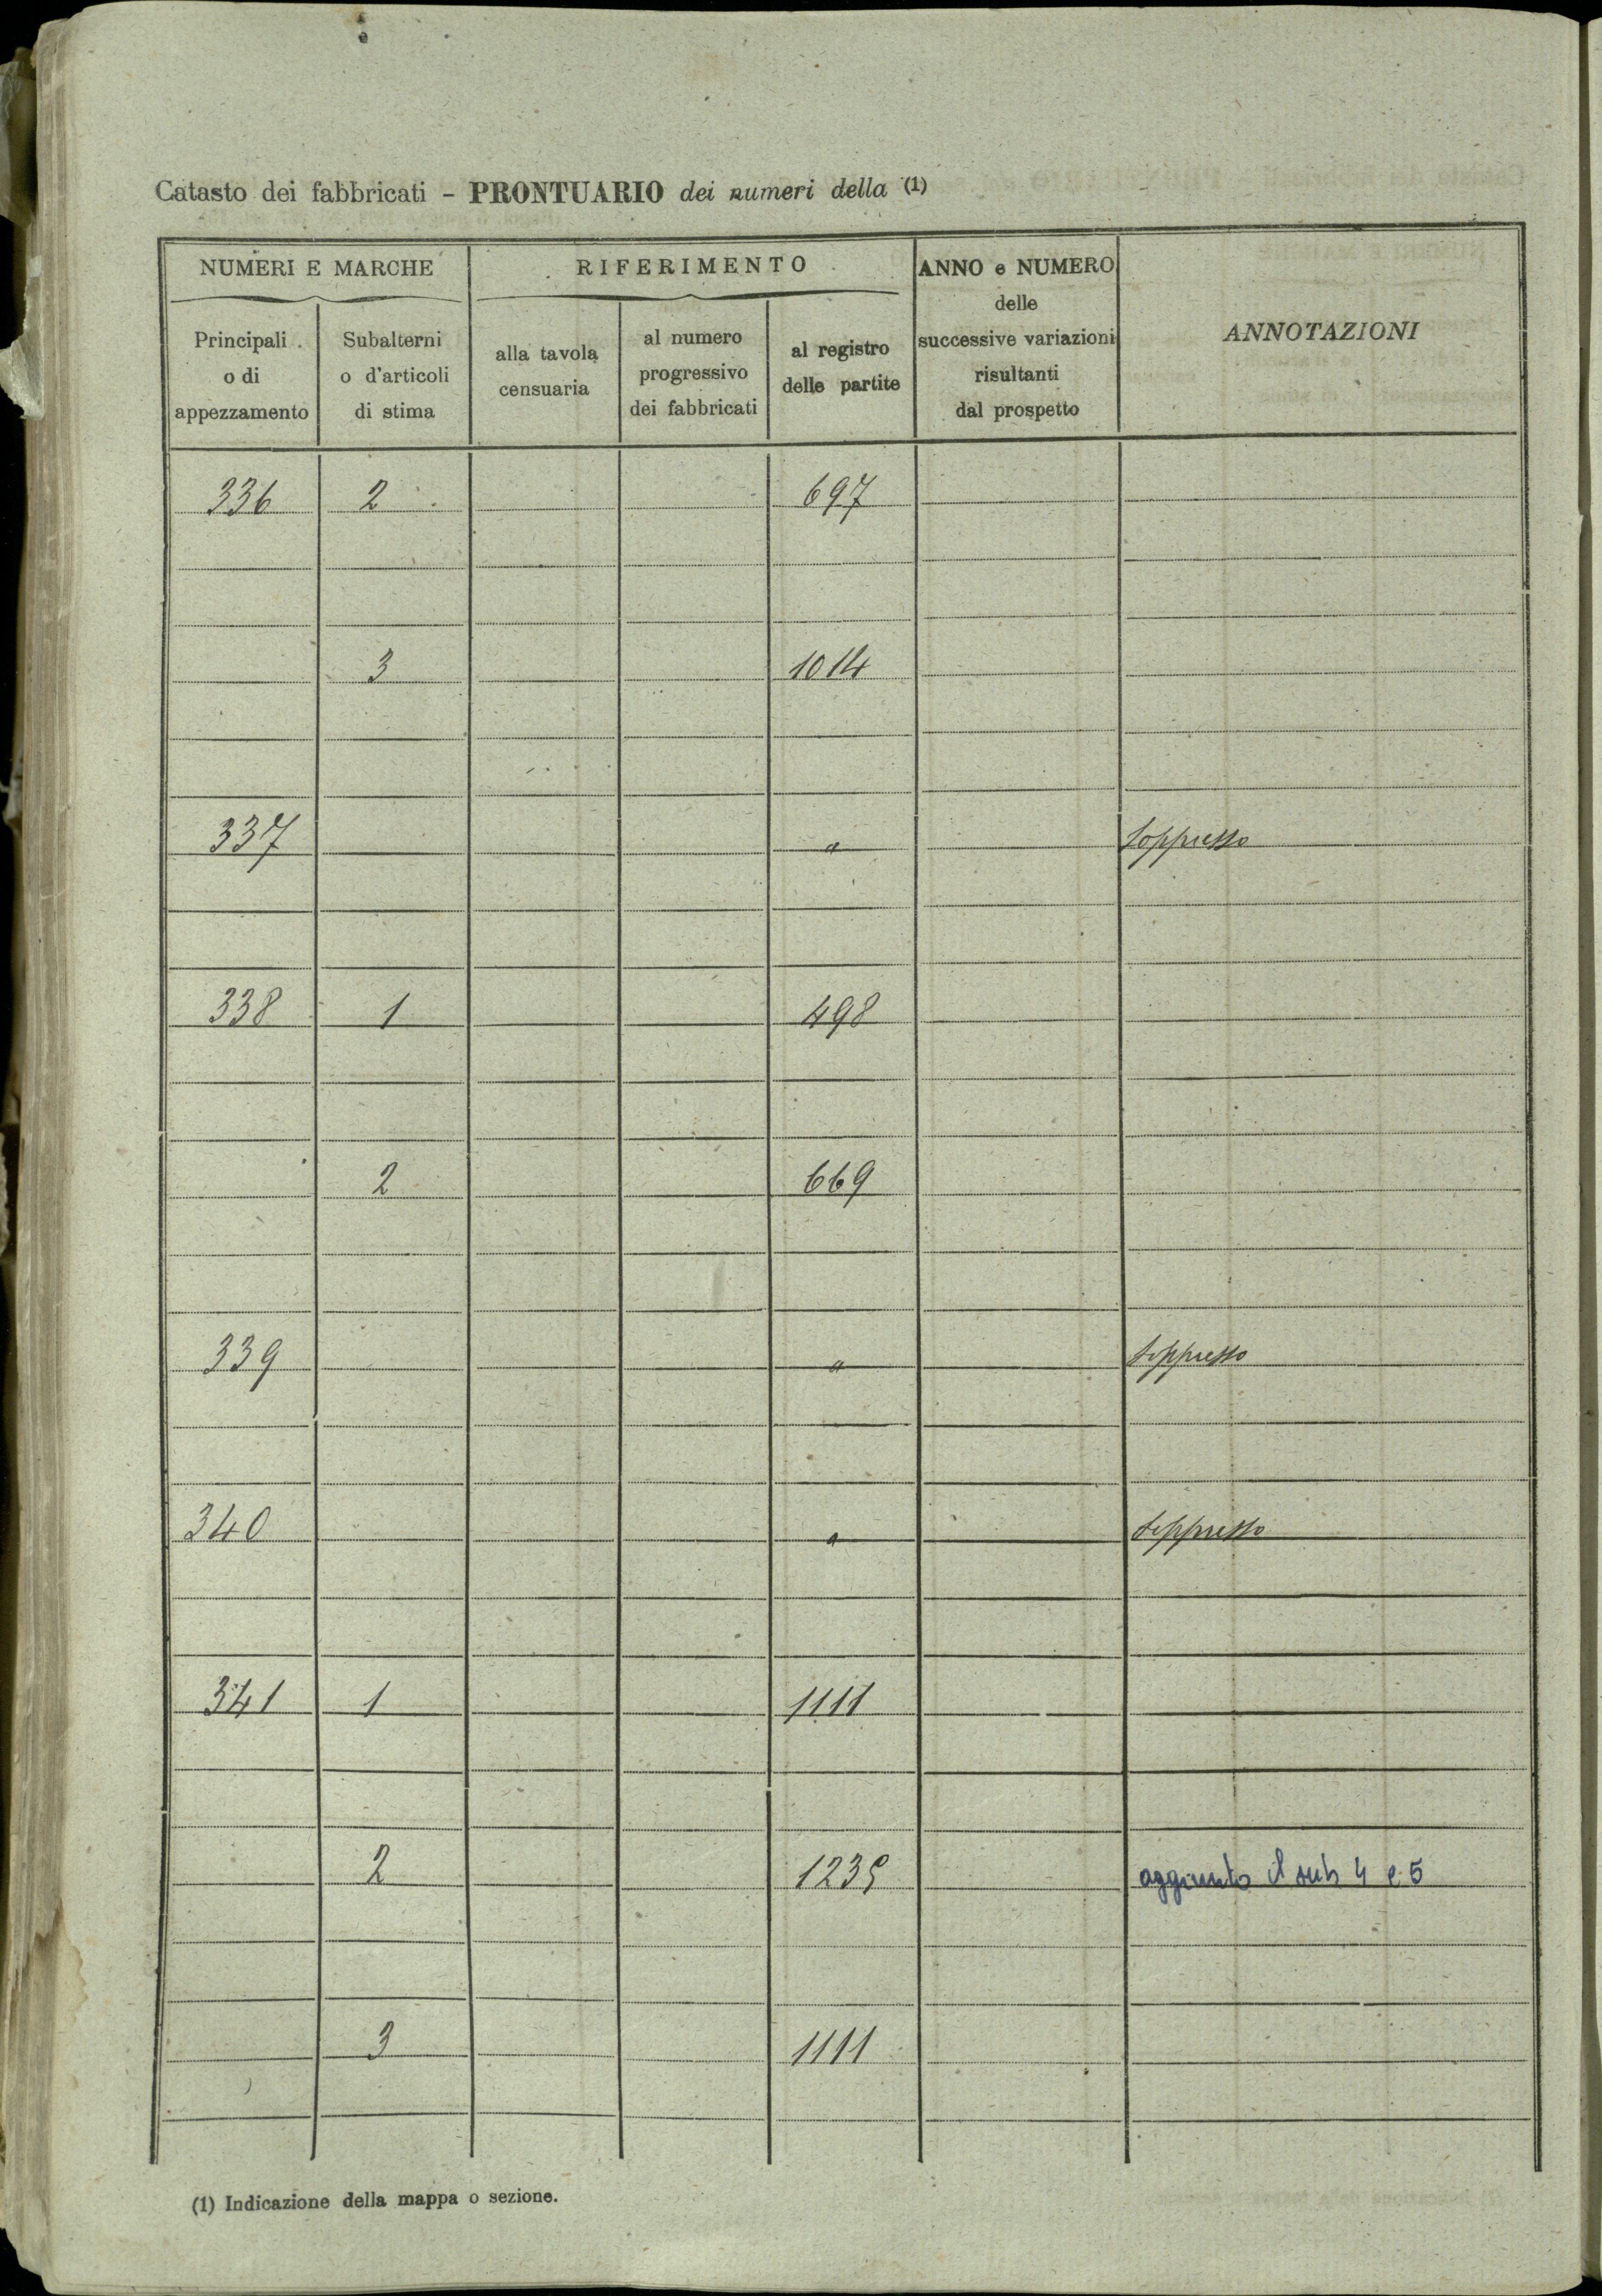 Catasto dei fabbricati - PRONTUARIO dei numeri della (1)
NUMERI E MARCHE
Principali
o di
appezzamento
Subalterni
o d'articoli
di stima
RIFERIMENTO
alla tavola
censuaria
al numero
progressivo
dei fabbricati
al registro
delle partite
ANNO e NUMERO
delle
successive variazioni
risultanti
dal prospetto
ANNOTAZIONI
336 2 697
3 1014
337 " Soppresso
338 1 498
2 669
339 " Soppresso
340 " Soppresso
341 1 1111
2 1235 aggiunto il sub 4 e 5
3 1111
(1) Indicazione della mappa o sezione.